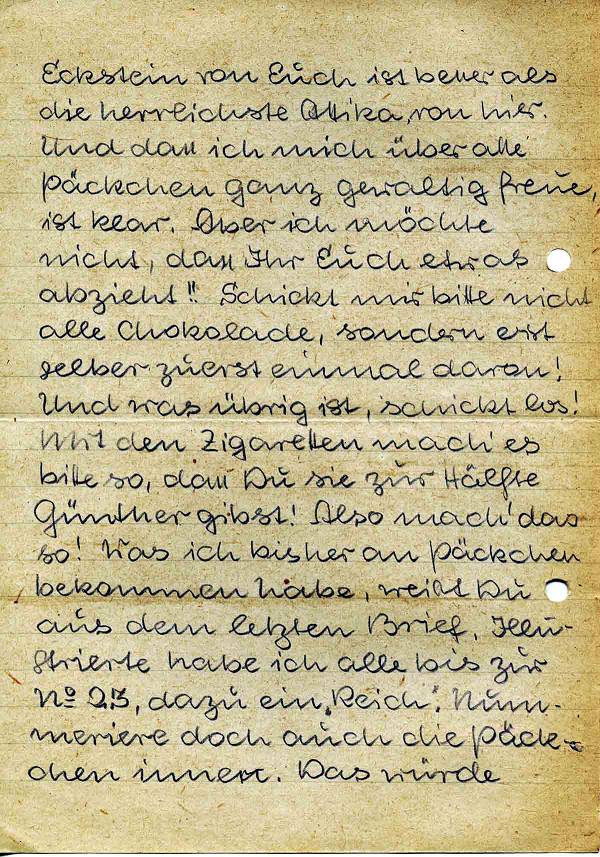 Eckstein von Euch ist besser als
die herrlichste Attika von hier.
Und dass ich mich über alle
Päckchen ganz gewaltig freue,
ist klar. Aber ich möchte
nicht, dass Ihr Euch etwas
abzieht!! Schickt mir bitte nicht
alle Chokolade, sondern esst
selber zuerst einmal daran!
Und was übrig ist, schickt los!
Mit den Zigaretten mach' es
bitte so, dass Du sie zur Hälfte
Günther gibst! Also mach' das
so! Was ich bisher an Päckchen
bekommen habe, weißt Du
aus dem letzten Brief. Illu-
strierte habe ich alle bis zur
No 23, dazu ein „Reich". Num-
meriere doch auch die Päck-
chen immer. Das würde